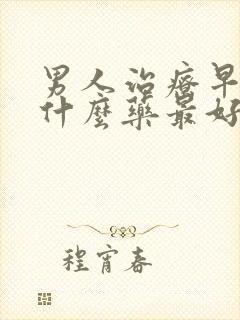 男人治疗早
什麼藥最好
程宵春